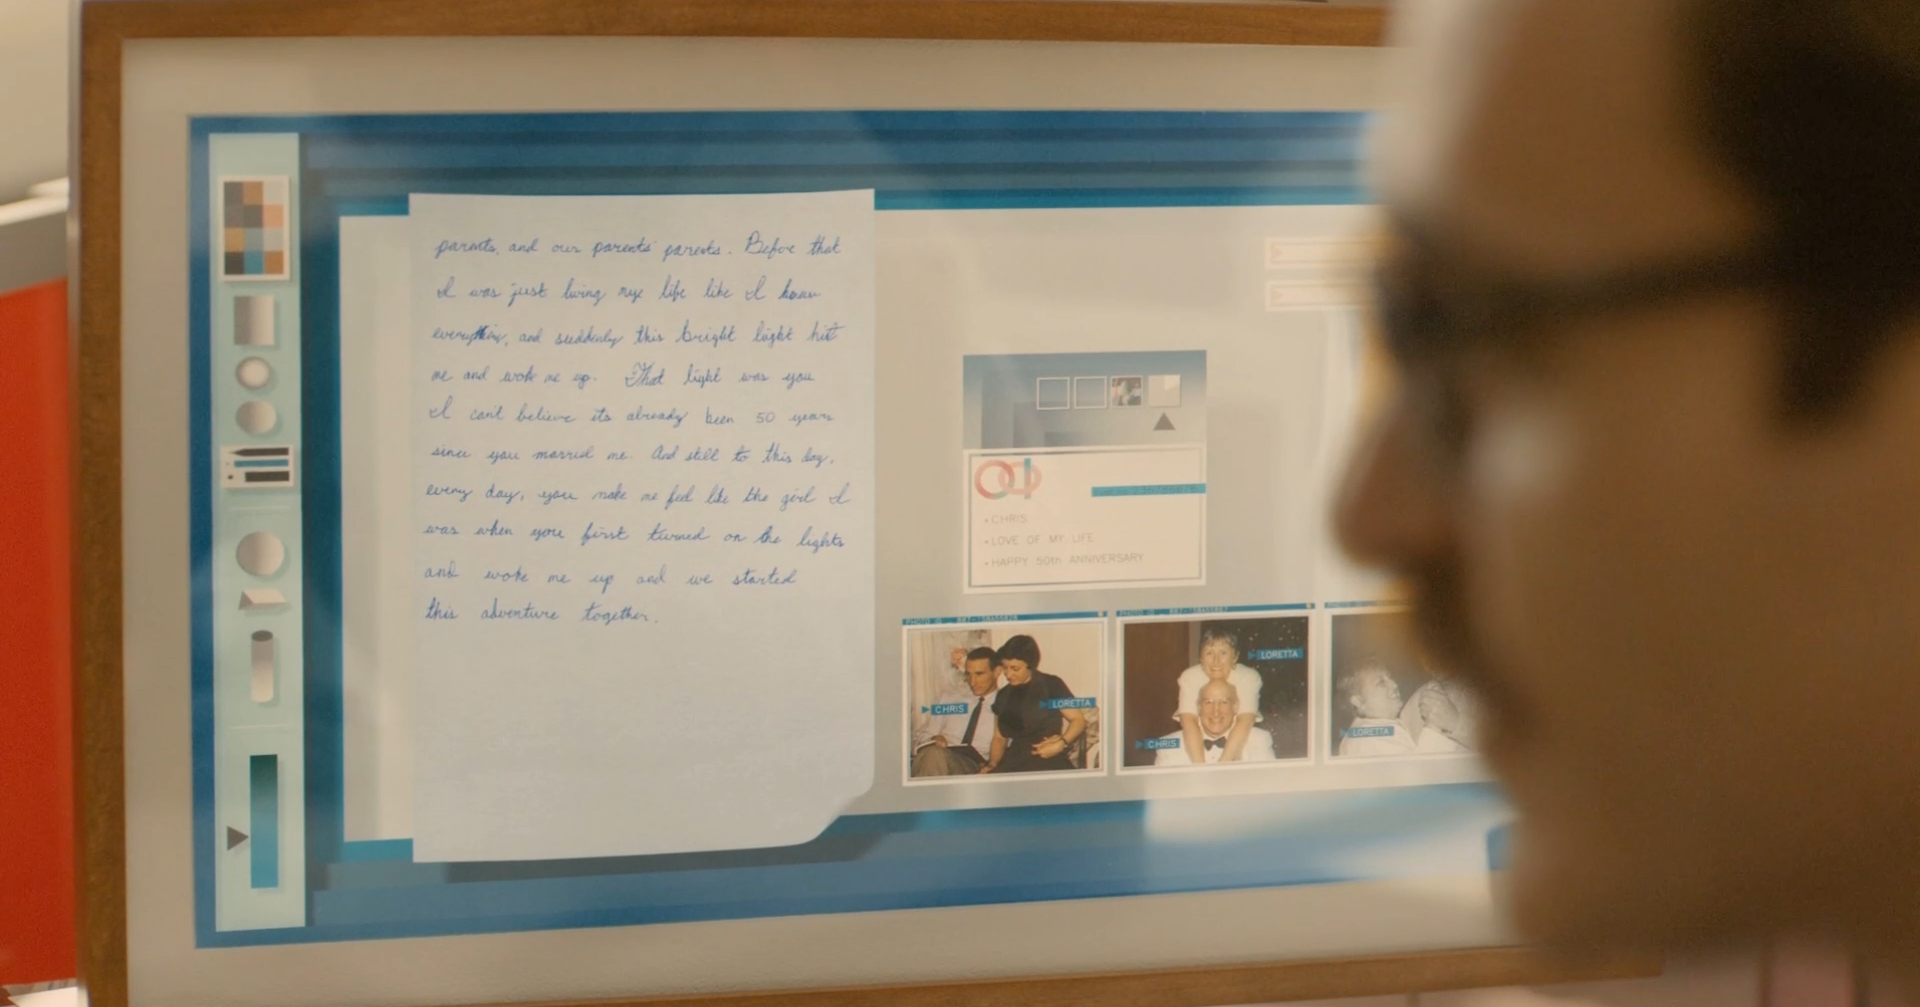 parents, and our parents' parents. Before that
I was just living mye life like I know
everything, and suddenly this bright light hit
me and woke me up. That light was you
I can't believe its already been 50 years
since you married me. And still to this day,
every day, you make me feel like the girl I
was when you first turned on the lights
and woke me up and we started
this adventure together.
• CHRIS
• LOVE OF MY LIFE
• HAPPY 50th ANNIVERSARY
PHOTO ID
PHOTO ID
CHRIS
LORETTA
LORETTA
CHRIS
LORETTA